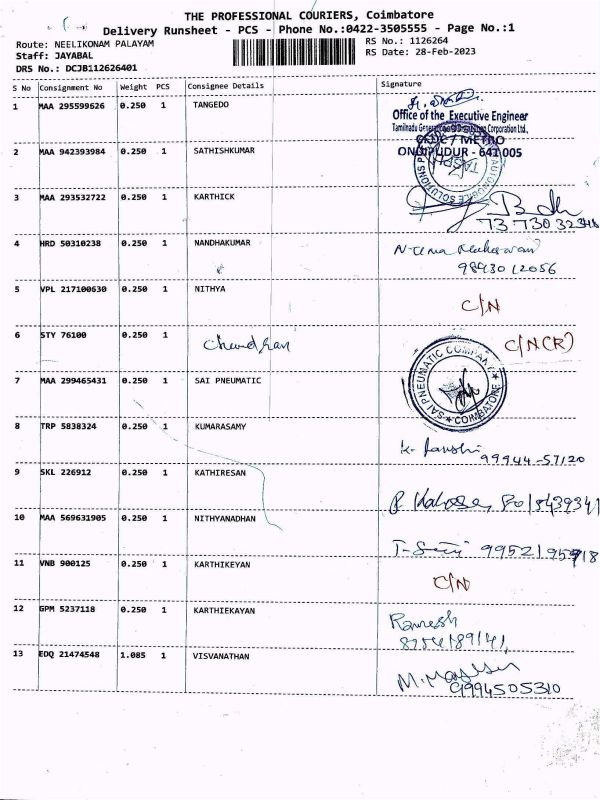 THE PROFESSIONAL COURIERS, Coimbatore
Delivery Runsheet - PCS - Phone No.:0422-3505555 - Page No.:1
Route: NEELIKONAM PALAYAM
RS No.: 1126264
Staff: JAYABAL
RS Date: 28-Feb-2023
DRS No.: DCJB112626401
S No Consignment No Weight PCS Consignee Details Signature
1 MAA 295599626 0.250 1 TANGEDO
Office of the Executive Engineer
METRO
2 MAA 942393984 0.250 1 SATHISHKUMAR
ONDIPUDUR - 641 005
3 MAA 293532722 0.250 1 KARTHICK
73 730 32348
4 HRD 50310238 0.250 1 NANDHAKUMAR
5 VPL 217100630 0.250 1 NITHYA
C/N
6 STY 76100 0.250 1 Chandran C/N(R)
7 MAA 299465431 0.250 1 SAI PNEUMATIC
SAI PNEUMATIC COMPANY
COIMBATORE
8 TRP 5838324 0.250 1 KUMARASAMY
99944-57120
9 SKL 226912 0.250 1 KATHIRESAN
10 MAA 569631905 0.250 1 NITHYANADHAN
11 VNB 900125 0.250 1 KARTHIKEYAN
C/N
12 GPM 5237118 0.250 1 KARTHIEKAYAN
Ramesh
13 EDQ 21474548 1.085 1 VISVANATHAN
9994505310